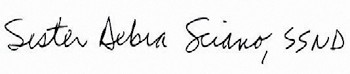 Sister Debra Sciano, SSND